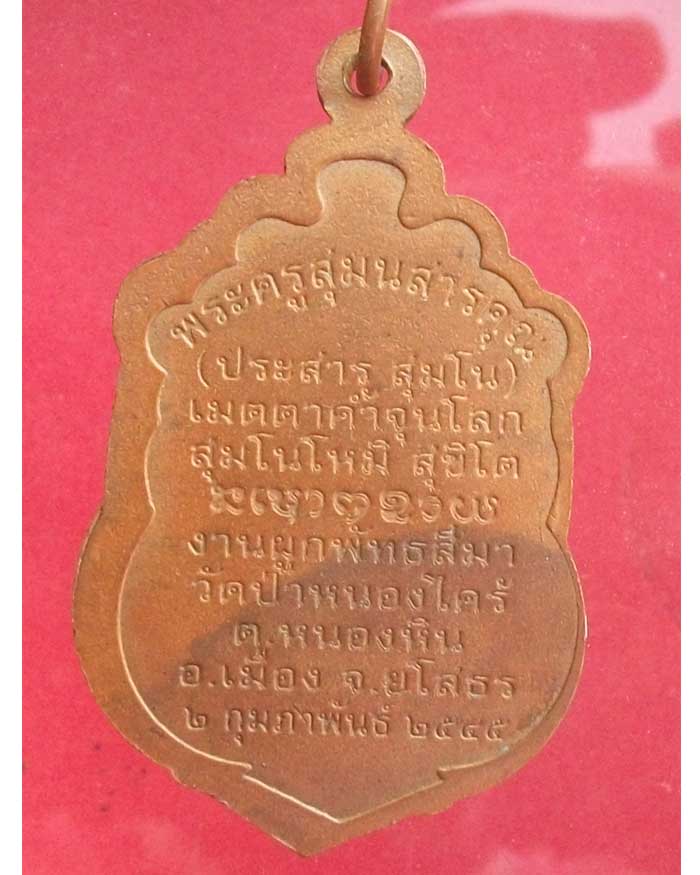 พระครูสุมนสารคุณ
(ประสาร สุมโน)
เมตตาค้ำจุนโลก
สุมโนโหมิ สุขิโต
งานผูกพัทธสีมา
วัดป่าหนองไคร้
ต.หนองหิน
อ.เมือง จ.ยโสธร
๒ กุมภาพันธ์ ๒๕๔๕